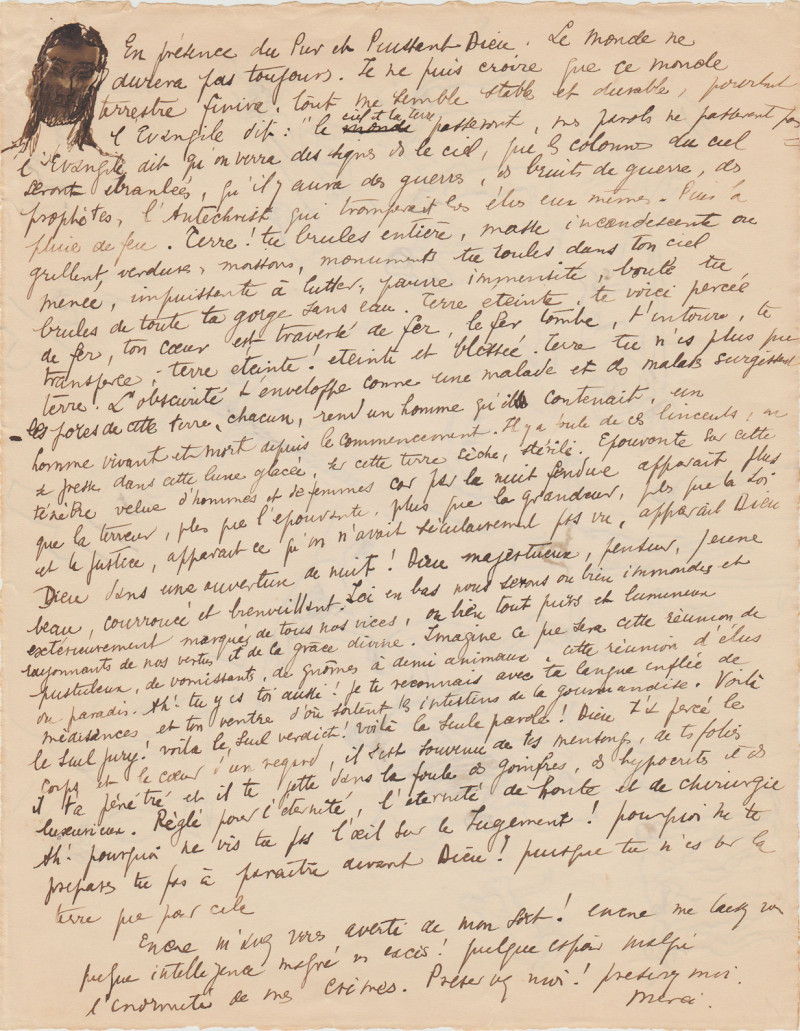 En présence du Pur et Puissant Dieu. Le monde ne
durera pas toujours. Je ne puis croire que ce monde
terrestre finira. tout me semble stable et durable, pourtant
l'Evangile dit : "le ciel et la terre passeront, mes parols ne passeront pas
l'Evangile dit qu'on verra des signes ds le ciel, que les colonnes du ciel
seront ébranlées, qu'il y aura des guerres, ds bruits de guerre, ds
prophètes, l'Antechrist qui tromperait les élus eux mêmes. Puis la
pluie de feu. Terre! tu brules entière, masse incandescente ou
grillent verdures, moissons, monuments tu roules dans ton ciel
menée, impuissante à lutter, pauvre immensité, boule tu
brules de toute ta gorge sans eau. terre eteinte, te voici percée
de fer, ton cœur est traversé de fer, le fer tombe, t'entoure, te
transperce, terre eteinte! eteinte et blessée. terre tu n'es plus que
terre. L'obscurité t'enveloppe comme une malade et ds malades surgissent
les pores de cette terre, chacun, rend un homme qu'il contenait, un
homme vivant et mort depuis le commencement. Il y a foule de ces linceuls, on
se presse dans cette lune glacée, sur cette terre sèche, stérile. Epouvante sur cette
ténèbre velue d'hommes et de femmes car par la nuit fendue apparait plus
que la terreur, plus que l'epouvante, plus que la grandeur, plus que la Loi
et la Justice, apparait ce qu'on n'avait séculairement pas vu, apparait Dieu
Dieu dans une ouverture de nuit! Dieu majestueux, penseur, jeune
beau, courroucé et bienveillant. Ici en bas nous serons ou bien immondes et
extérieurement marqués de tous nos vices, ou bien tout purs et lumineux
rayonnants de nos vertus et de la grâce divine. Imagine ce que sera cette réunion de
pustuleux, de vomissants, de gnômes à demi animaux, cette réunion d'élus
ou paradis. Ah! tu y es toi aussi! je te reconnais avec ta langue enflée de
médisances et ton ventre d'où sortent les intestins de la gourmandise. Voilà
le seul jury! voilà le seul verdict! Voilà la seule parole! Dieu t'a percé le
corps et le cœur d'un regard, il s'est souvenu de tes mensongs, de ts folies
il t'a pénétré et il te jette dans la foule ds goinfres, ds hypocrits et ds
luxurieux. Réglé pour l'eternité, l'eternité de honte et de chirurgie
Ah! pourquoi ne vis tu pas l'œil sur le Jugement! pourquoi ne te
prepares tu pas à paraître devant Dieu! puisque tu n'es sur la
terre que pour cela
Encore m'avez vous averti de mon sort! encore me laissez vous
quelque intelligence malgré mes excès! quelque espoir malgré
l'énormité de mes crimes. Préservez moi! préservez moi.
Merci.